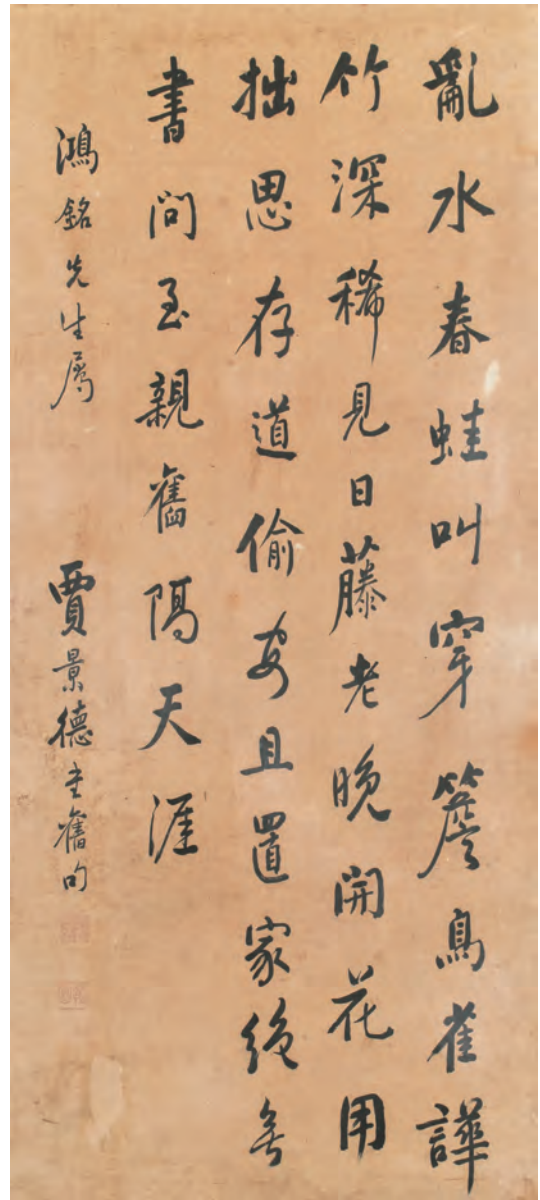 亂水春蛙叫穿簷鳥雀譁
竹深稀見日藤老晚開花用
拙思存道偷安且置家絕無
書問至親舊隔天涯
鴻銘先生屬
賈景德書舊句